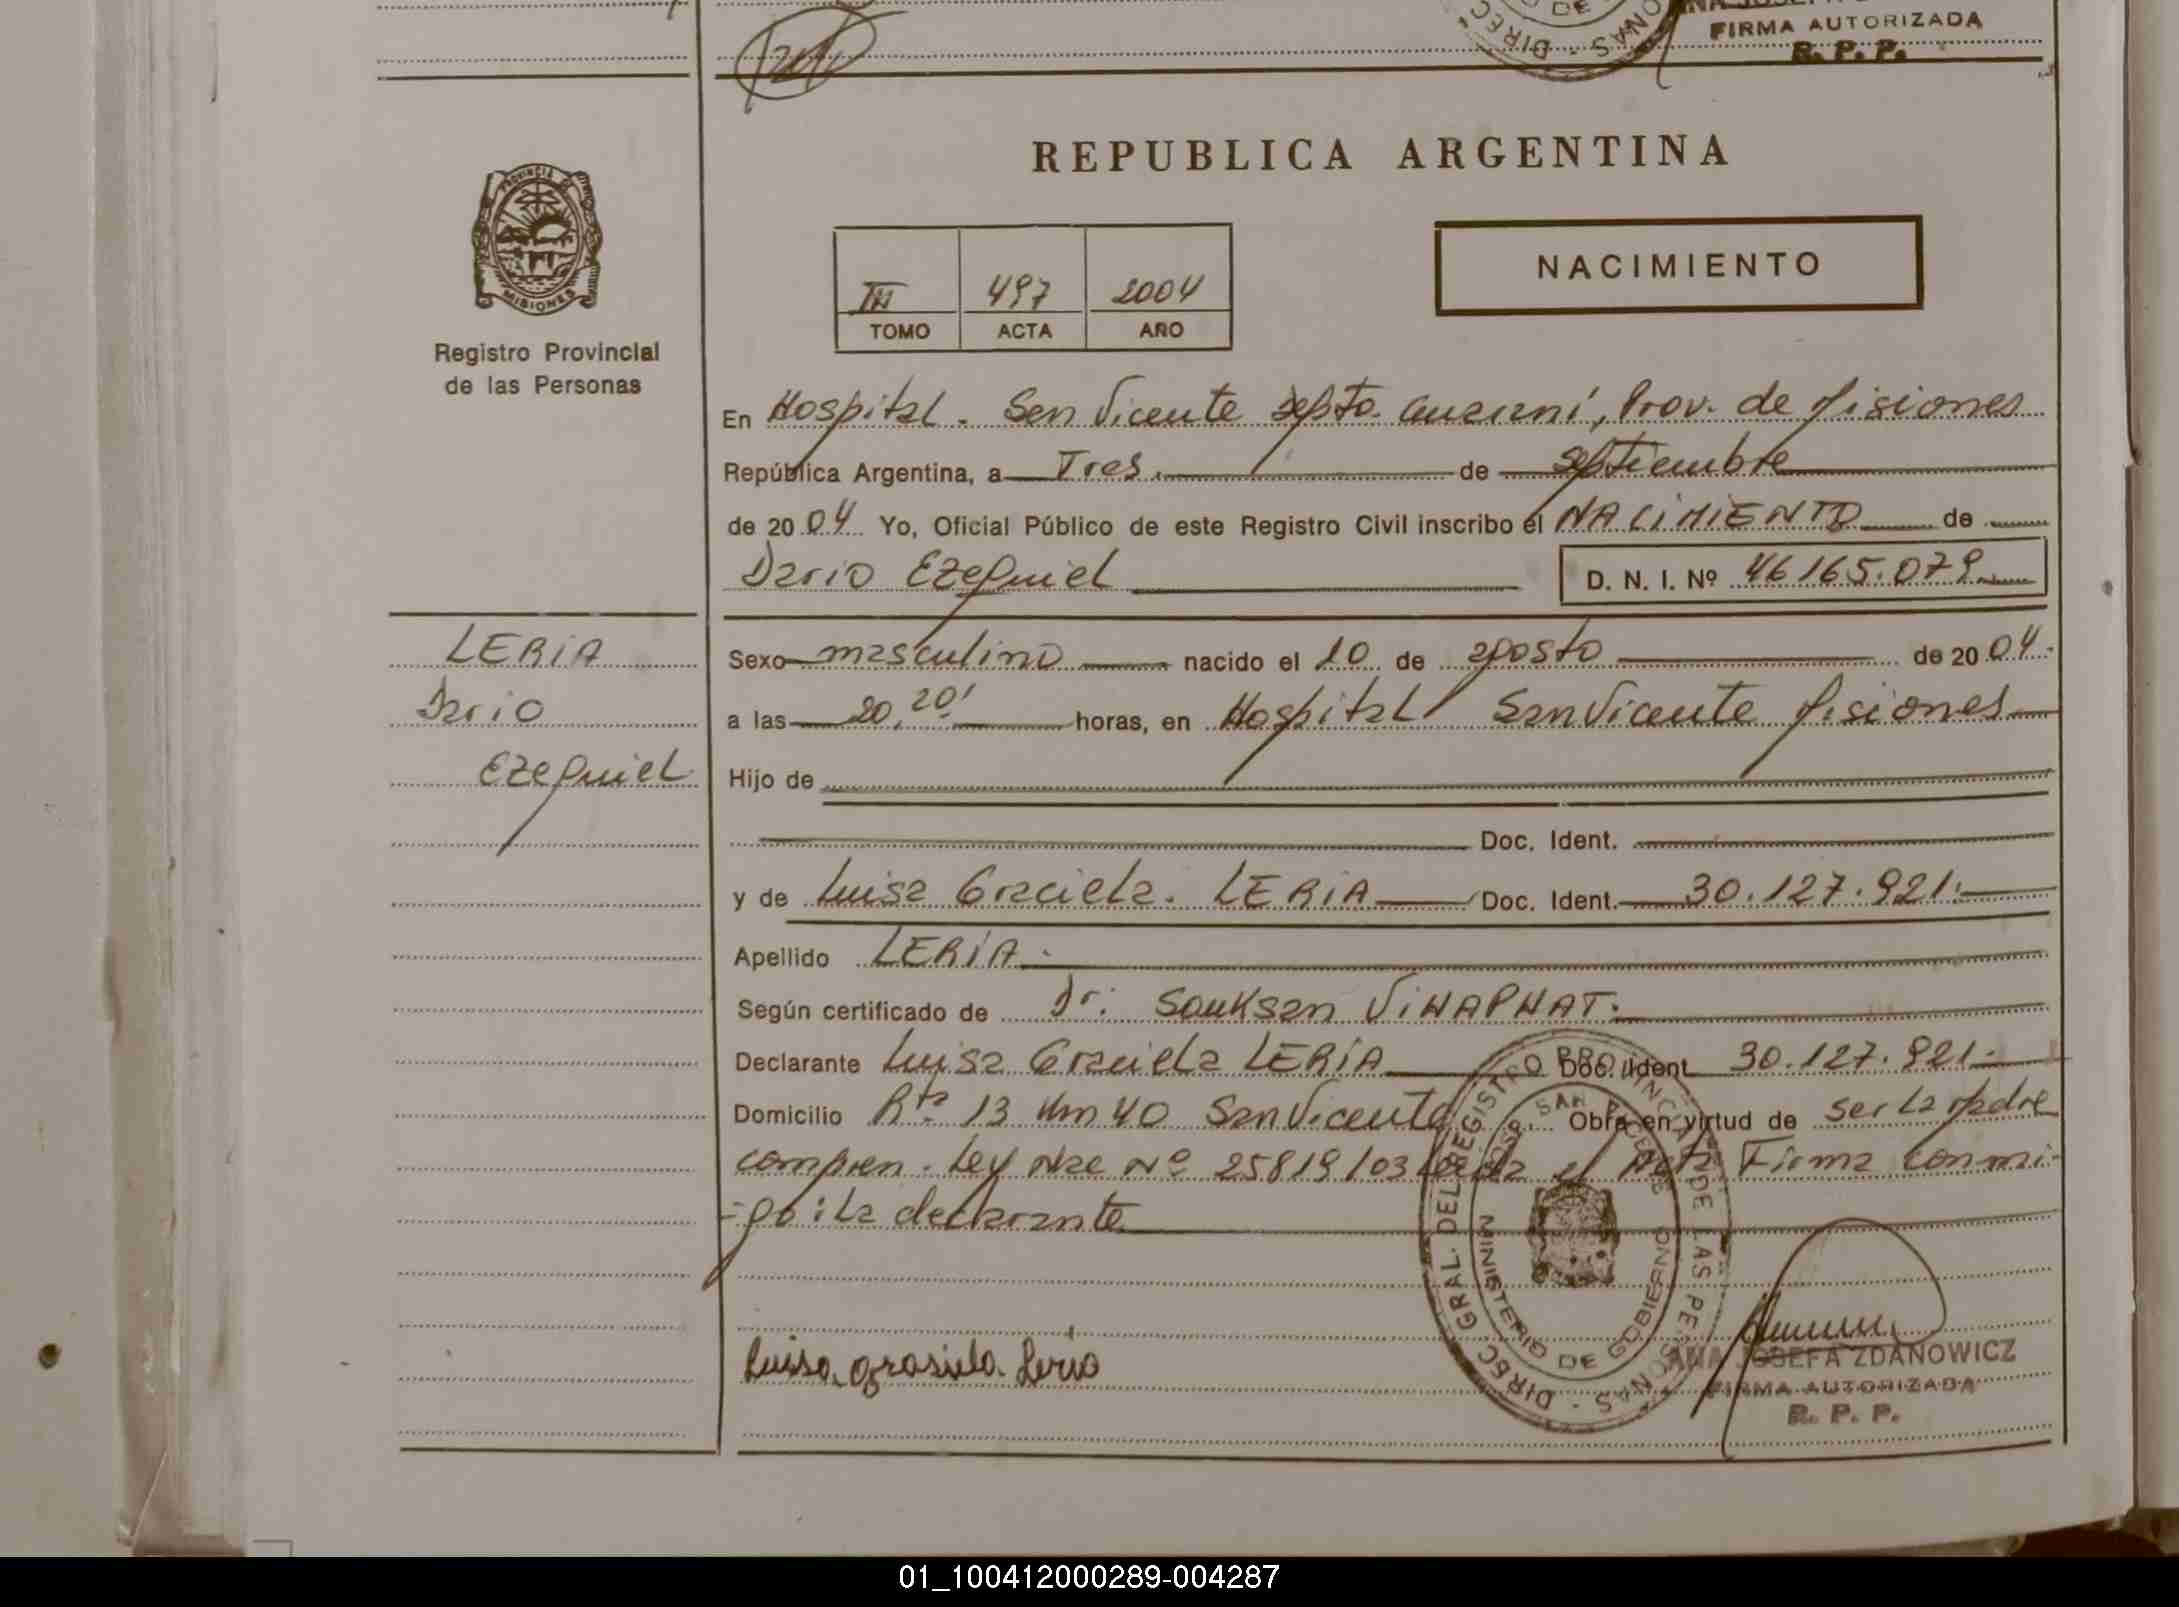 FIRMA AUTORIZADA
R. P. P.
REPUBLICA ARGENTINA
PROVINCIA DE
MISIONES
Registro Provincial
de las Personas
III 497 2004
TOMO ACTA AÑO
NACIMIENTO
En Hospital. San Vicente Depto. Guaraní, Prov. de Misiones
República Argentina, a Tres de Septiembre
de 2004 Yo, Oficial Público de este Registro Civil inscribo el NACIMIENTO de
Dario Ezequiel D. N. I. Nº 46165.079
LERIA
Dario
Ezequiel
Sexo masculino nacido el 10 de agosto de 2004.
a las 20,20' horas, en Hospital San Vicente Misiones
Hijo de
Doc. Ident.
y de Luisa Graciela. LERIA Doc. Ident. 30.127.921.
Apellido LERIA.
Según certificado de Dr: SOUKSAN VIHAPHAT.
Declarante Luisa Graciela LERIA Doc. Ident 30.127.921.
Domicilio Rta 13 Km 40 San Vicente Obra en virtud de ser la madre
compren. Ley Nac Nº 25819/03 Leida el Acta Firma conmi-
-go: la declarante
Luisa grasiela Leria
DIREC. GRAL. DEL REGISTRO PROVINCIAL DE LAS PERSONAS
MINISTERIO DE GOBIERNO
ANA JOSEFA ZDANOWICZ
FIRMA AUTORIZADA
R. P. P.
01_100412000289-004287